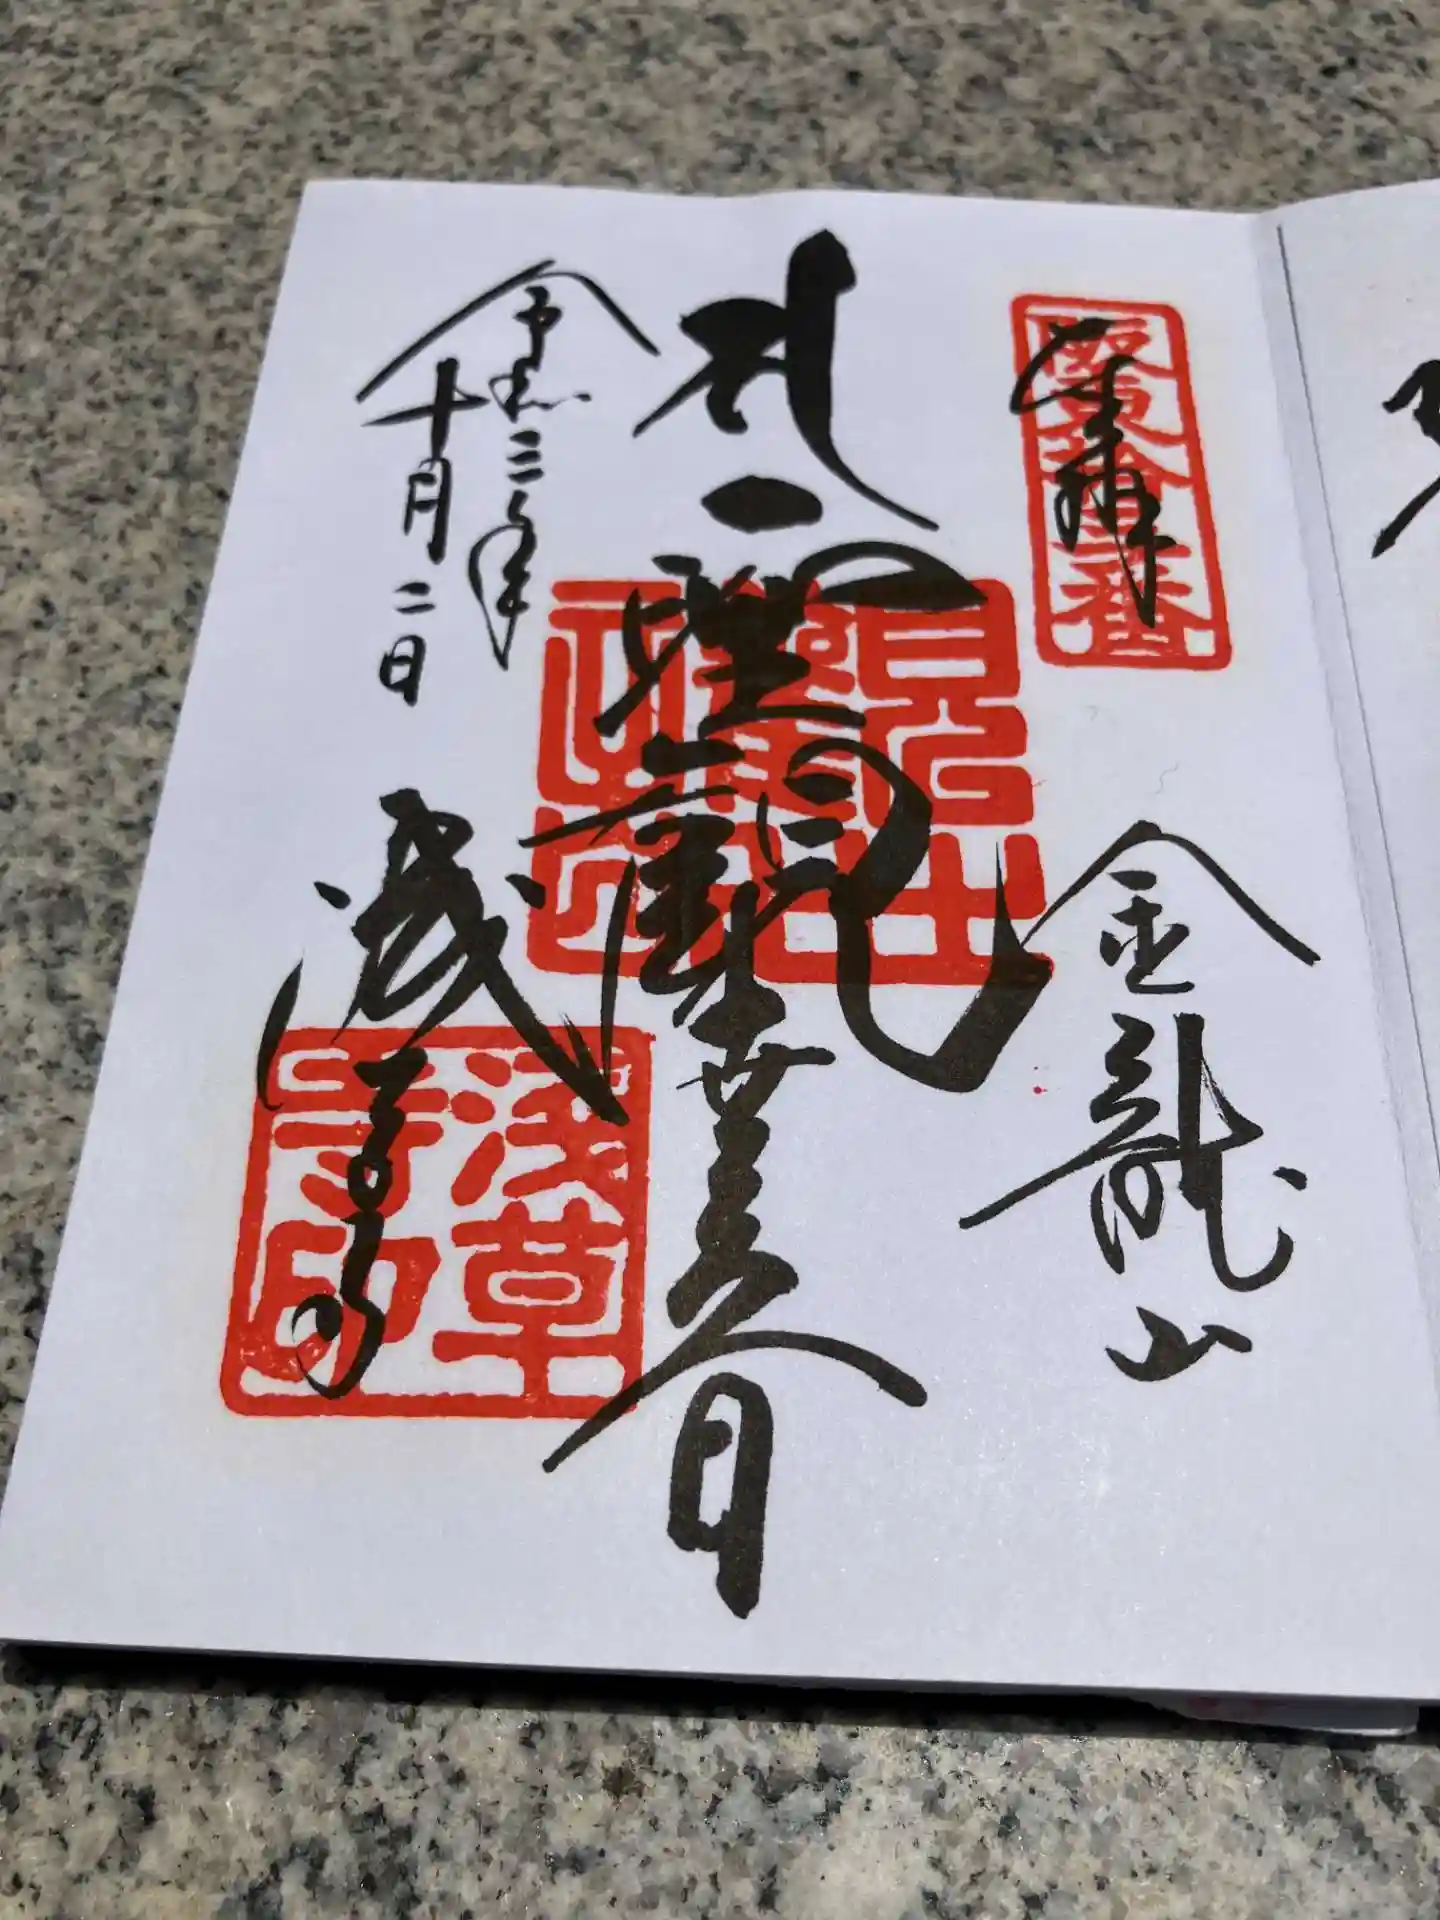 奉拝
坂東拾三番
金龍山
聖観世音
令和二年
十月二日
浅草寺
浅草寺印